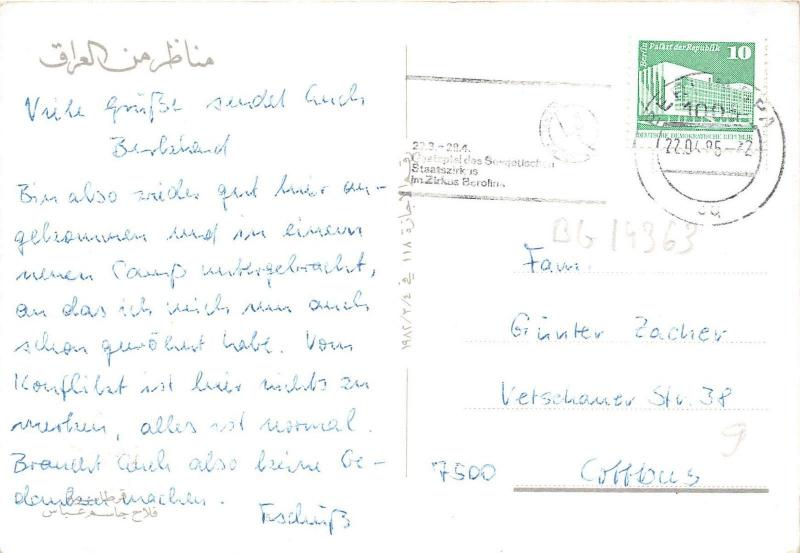 مناظر من العراق
Viele Grüße sendet Euch
Bin also wieder gut hier an-
gekommen und in einem
neuen Camp untergebracht,
an das ich mich nun auch
schon gewöhnt habe. Vom
Konflikt ist hier nichts zu
merken, alles ist normal.
Braucht Euch also keine Ge-
danken machen.
Tschüß
فلاح جاسم عباس
Berlin Palast der Republik 10
DEUTSCHE DEMOKRATISCHE REPUBLIK
22.04.85
Gastspiel des Sowjetischen
Staatszirkus
im Zirkus Berolina
BG 14363
Fam.
Günter Zacher
Vetschauer Str. 38
7500 Cottbus